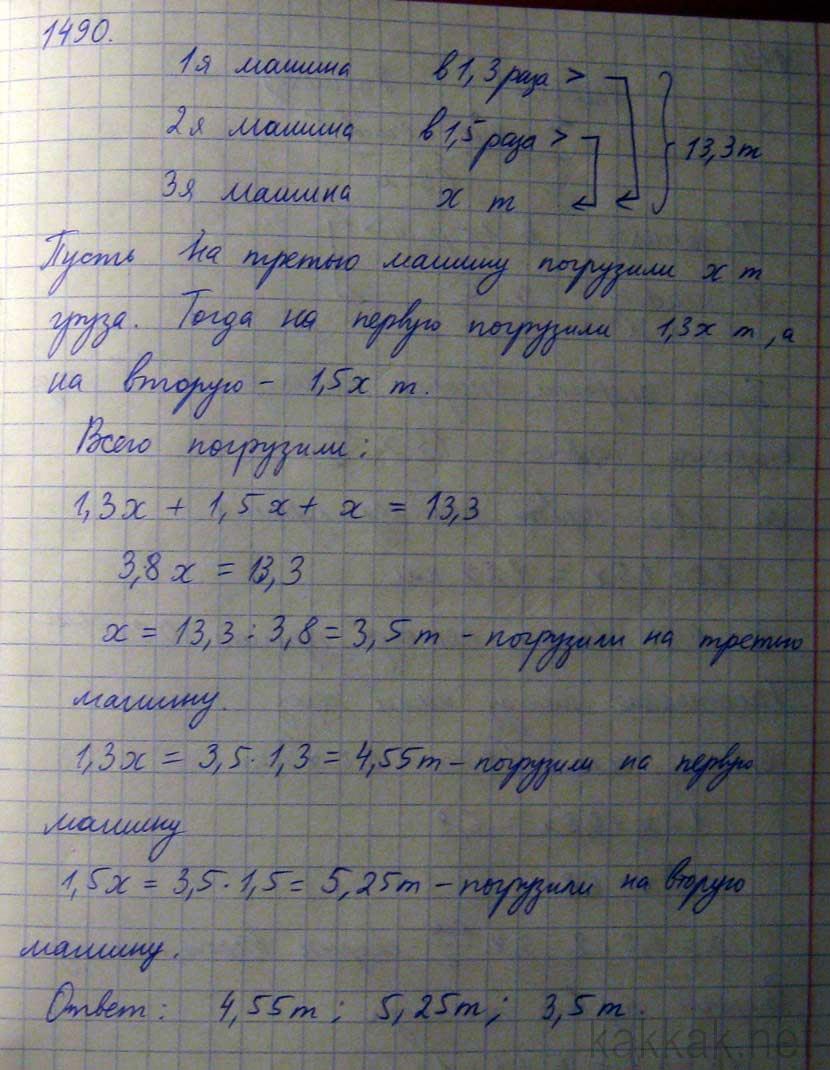 1490.
1я машина в 1,3 раза >
2я машина в 1,5 раза > 13,3т
3я машина х т
Пусть на третью машину погрузили х т
груза. Тогда на первую погрузили 1,3х т, а
на вторую - 1,5х т.
Всего погрузили:
1,3х + 1,5х + х = 13,3
3,8х = 13,3
х = 13,3 : 3,8 = 3,5т - погрузили на третью
машину.
1,3х = 3,5 · 1,3 = 4,55т - погрузили на первую
машину
1,5х = 3,5 · 1,5 = 5,25т - погрузили на вторую
машину.
Ответ: 4,55т; 5,25т; 3,5т.
kakkak.ne